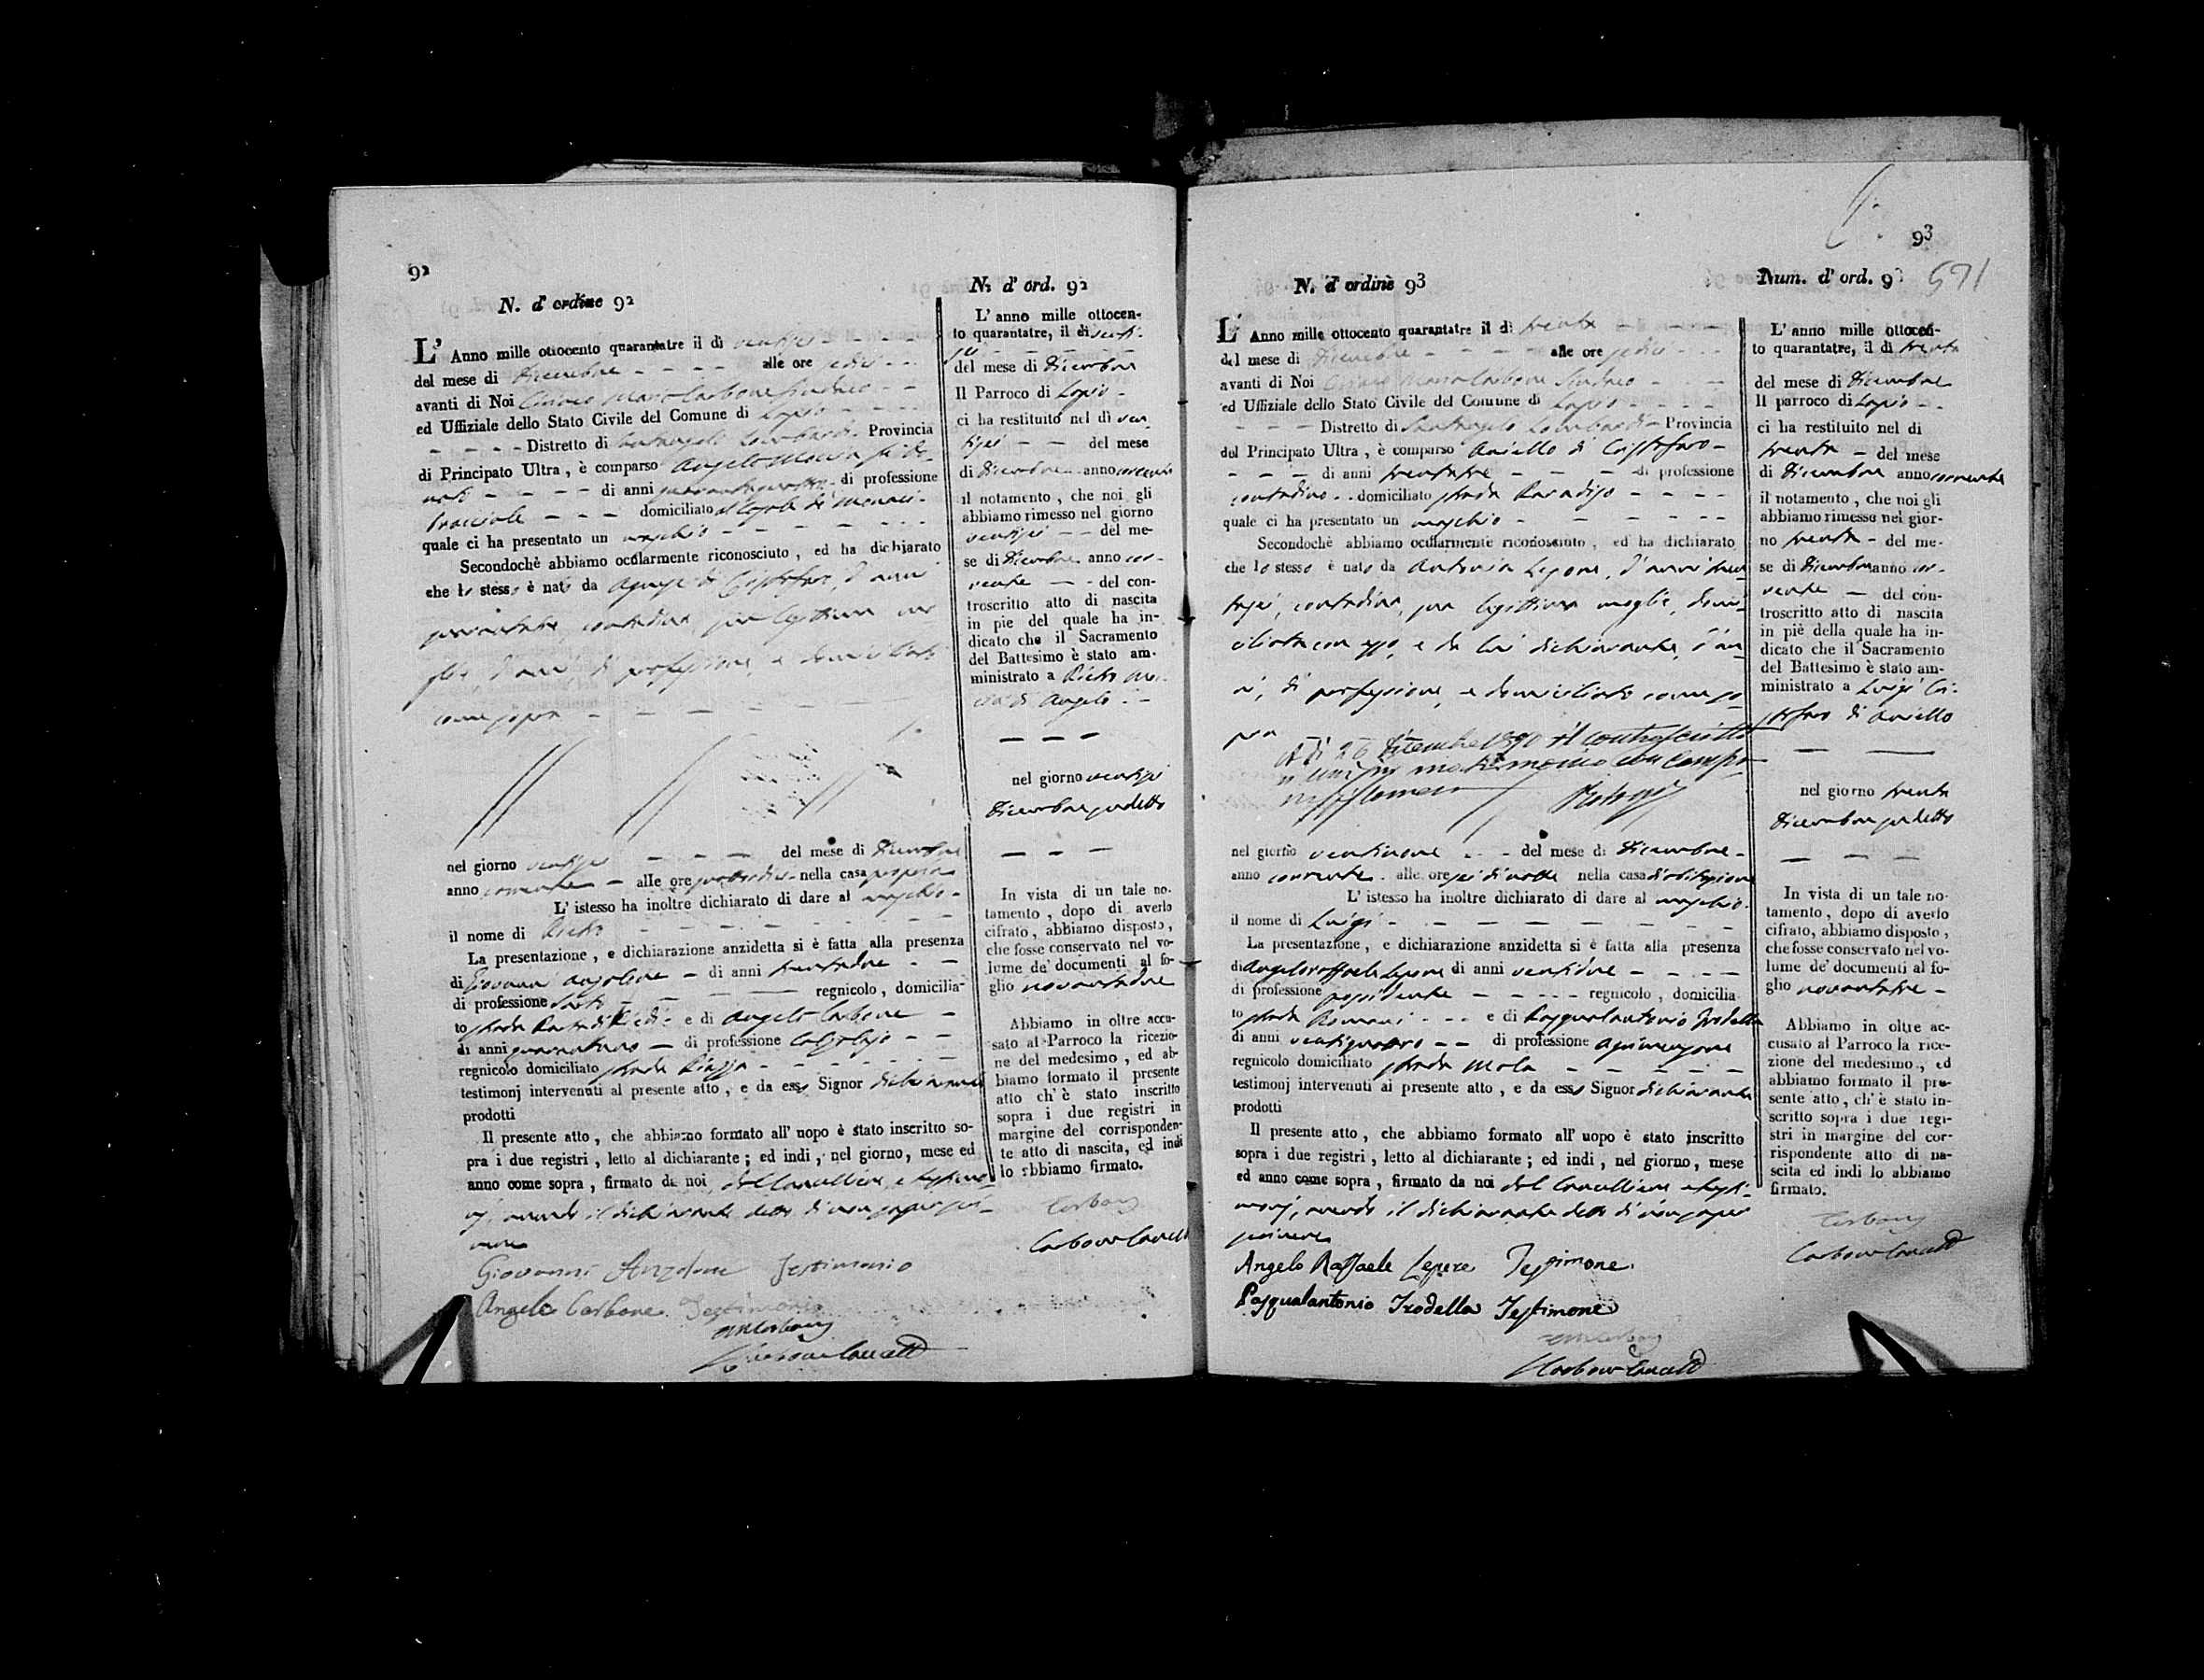 92
N. d' ordine 92
L' Anno mille ottocento quarantatre il dì ventisei
del mese di Dicembre alle ore sedici
avanti di Noi Ciriaco Maria Carbone Sindaco
ed Uffiziale dello Stato Civile del Comune di Lapio
Distretto di Santangelo Lombardi Provincia
di Principato Ultra, è comparso Angelo
di anni quarantaquattro di professione
bracciale domiciliato
quale ci ha presentato un maschio
Secondochè abbiamo ocularmente riconosciuto, ed ha dichiarato
che lo stesso è nato da Agnese di Cristofaro, d'anni
quarantatre, contadina, sua legittima mo-
d'anni, di professione, e domiciliato
come sopra
nel giorno ventisei del mese di Dicembre
anno corrente alle ore quattordici nella casa propria
L' istesso ha inoltre dichiarato di dare al maschio
il nome di Pietro
La presentazione, e dichiarazione anzidetta si è fatta alla presenza
di Giovanni Anzolone di anni trentadue
di professione Sarto regnicolo, domicilia-
to strada e di Angelo Carbone
di anni di professione Calzolajo
regnicolo domiciliato strada Piazza
testimonj intervenuti al presente atto, e da esso Signor dichiarante
prodotti
Il presente atto, che abbiamo formato all' uopo è stato inscritto so-
pra i due registri, letto al dichiarante; ed indi, nel giorno, mese ed
anno come sopra, firmato da noi, dal Cancelliere, e testimo-
nj, avendo il dichiarante detto di non saper scri-
vere
Giovanni Anzolone Testimonio
Angelo Carbone Testimonio
Carbone
N. d' ord. 92
L' anno mille ottocen-
to quarantatre, il dì venti-
sei
del mese di Dicembre
Il Parroco di Lapio
ci ha restituito nel dì ven-
tisei del mese
di Dicembre anno corrente
il notamento, che noi gli
abbiamo rimesso nel giorno
ventisei del me-
se di Dicembre anno cor-
rente del con-
troscritto atto di nascita
in pie del quale ha in-
dicato che il Sacramento
del Battesimo è stato am-
ministrato a Pietro
di Angelo
nel giorno ventisei
Dicembre sudetto
In vista di un tale no-
tamento, dopo di averlo
cifrato, abbiamo disposto,
che fosse conservato nel vo-
lume de' documenti al fo-
glio novantadue
Abbiamo in oltre accu-
sato al Parroco la ricezio-
ne del medesimo, ed ab-
biamo formato il presente
atto ch' è stato inscritto
sopra i due registri in
margine del corrisponden-
te atto di nascita, ed indi
lo abbiamo firmato.
Carbone
93
N. d' ordine 93
L' Anno mille ottocento quarantatre il dì trenta
del mese di Dicembre alle ore sedici
avanti di Noi Ciriaco Maria Carbone Sindaco
ed Uffiziale dello Stato Civile del Comune di Lapio
Distretto di Santangelo Lombardi Provincia
del Principato Ultra, è comparso Aniello di Cristofaro
di anni trentatre di professione
contadino domiciliato strada Paradiso
quale ci ha presentato un maschio
Secondochè abbiamo ocularmente riconosciuto, ed ha dichiarato
che lo stesso è nato da Antonia Lepore, d'anni tren-
tasei, contadina, sua legittima moglie, domi-
ciliata con esso, e da lui dichiarante, d'an-
ni, di professione, e domiciliato come so-
pra
A dì 26 1890 il controscritto
si unì in matrimonio con
Filomena
nel giorno ventinove del mese di Dicembre
anno corrente alle ore sei di notte nella casa di abitazione
L' istesso ha inoltre dichiarato di dare al maschio
il nome di Luigi
La presentazione, e dichiarazione anzidetta si è fatta alla presenza
di Angeloraffaele Lepore di anni ventidue
di professione possidente regnicolo, domicilia-
to strada Romani e di Pasqualantonio Trodella
di anni ventiquattro di professione
regnicolo domiciliato strada Mola
testimonj intervenuti al presente atto, e da esso Signor dichiarante
prodotti
Il presente atto, che abbiamo formato all' uopo è stato inscritto
sopra i due registri, letto al dichiarante; ed indi, nel giorno, mese
ed anno come sopra, firmato da noi, dal Cancelliere, e testi-
monj, avendo il dichiarante detto di non saper
scrivere
Angelo Raffaele Lepore Testimone
Pasqualantonio Trodella Testimone
Carbone
Num. d' ord. 93
571
L' anno mille ottocen-
to quarantatre, il dì trenta
del mese di Dicembre
Il parroco di Lapio
ci ha restituito nel dì
trenta del mese
di Dicembre anno corrente
il notamento, che noi gli
abbiamo rimesso nel gior-
no trenta del me-
se di Dicembre anno cor-
rente del con-
troscritto atto di nascita
in piè della quale ha in-
dicato che il Sacramento
del Battesimo è stato am-
ministrato a Luigi Cri-
stofaro di Aniello
nel giorno trenta
Dicembre sudetto
In vista di un tale no-
tamento, dopo di averlo
cifrato, abbiamo disposto,
che fosse conservato nel vo-
lume de' documenti al fo-
glio novantatre
Abbiamo in oltre ac-
cusato al Parroco la rice-
zione del medesimo, ed
abbiamo formato il pre-
sente atto, ch' è stato in-
scritto sopra i due regi-
stri in margine del cor-
rispondente atto di na-
scita ed indi lo abbiamo
firmato.
Carbone